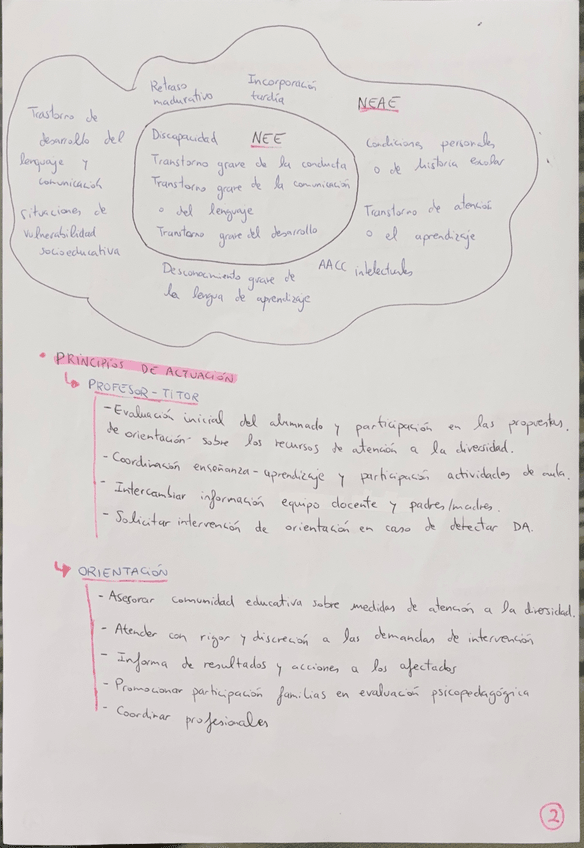 Retraso madurativo
Incorporación tardía
NEAE
Trastorno de
desarrollo del
lenguaje y
comunicación
situaciones de
vulnerabilidad
socioeducativa
Discapacidad NEE
Transtorno grave de la conducta
Transtorno grave de la comunicación
o del lenguaje
Transtorno grave del desarrollo
Condiciones personales
o de historia escolar
Transtorno de atención
o el aprendizaje
Desconocimiento grave de
la lengua de aprendizaje
AACC intelectuales
• PRINCIPIOS DE ACTUACIÓN
↳ PROFESOR-TITOR
- Evaluación inicial del alumnado y participación en las propuestas
de orientación sobre los recursos de atención a la diversidad.
- Coordinación enseñanza-aprendizaje y participación actividades de aula.
- Intercambiar información equipo docente y padres/madres.
- Solicitar intervención de orientación en caso de detectar DA.
↳ ORIENTACIÓN
- Asesorar comunidad educativa sobre medidas de atención a la diversidad.
- Atender con rigor y discreción a las demandas de intervención
- Informa de resultados y acciones a los afectados
- Promocionar participación familias en evaluación psicopedagógica
- Coordinar profesionales
2